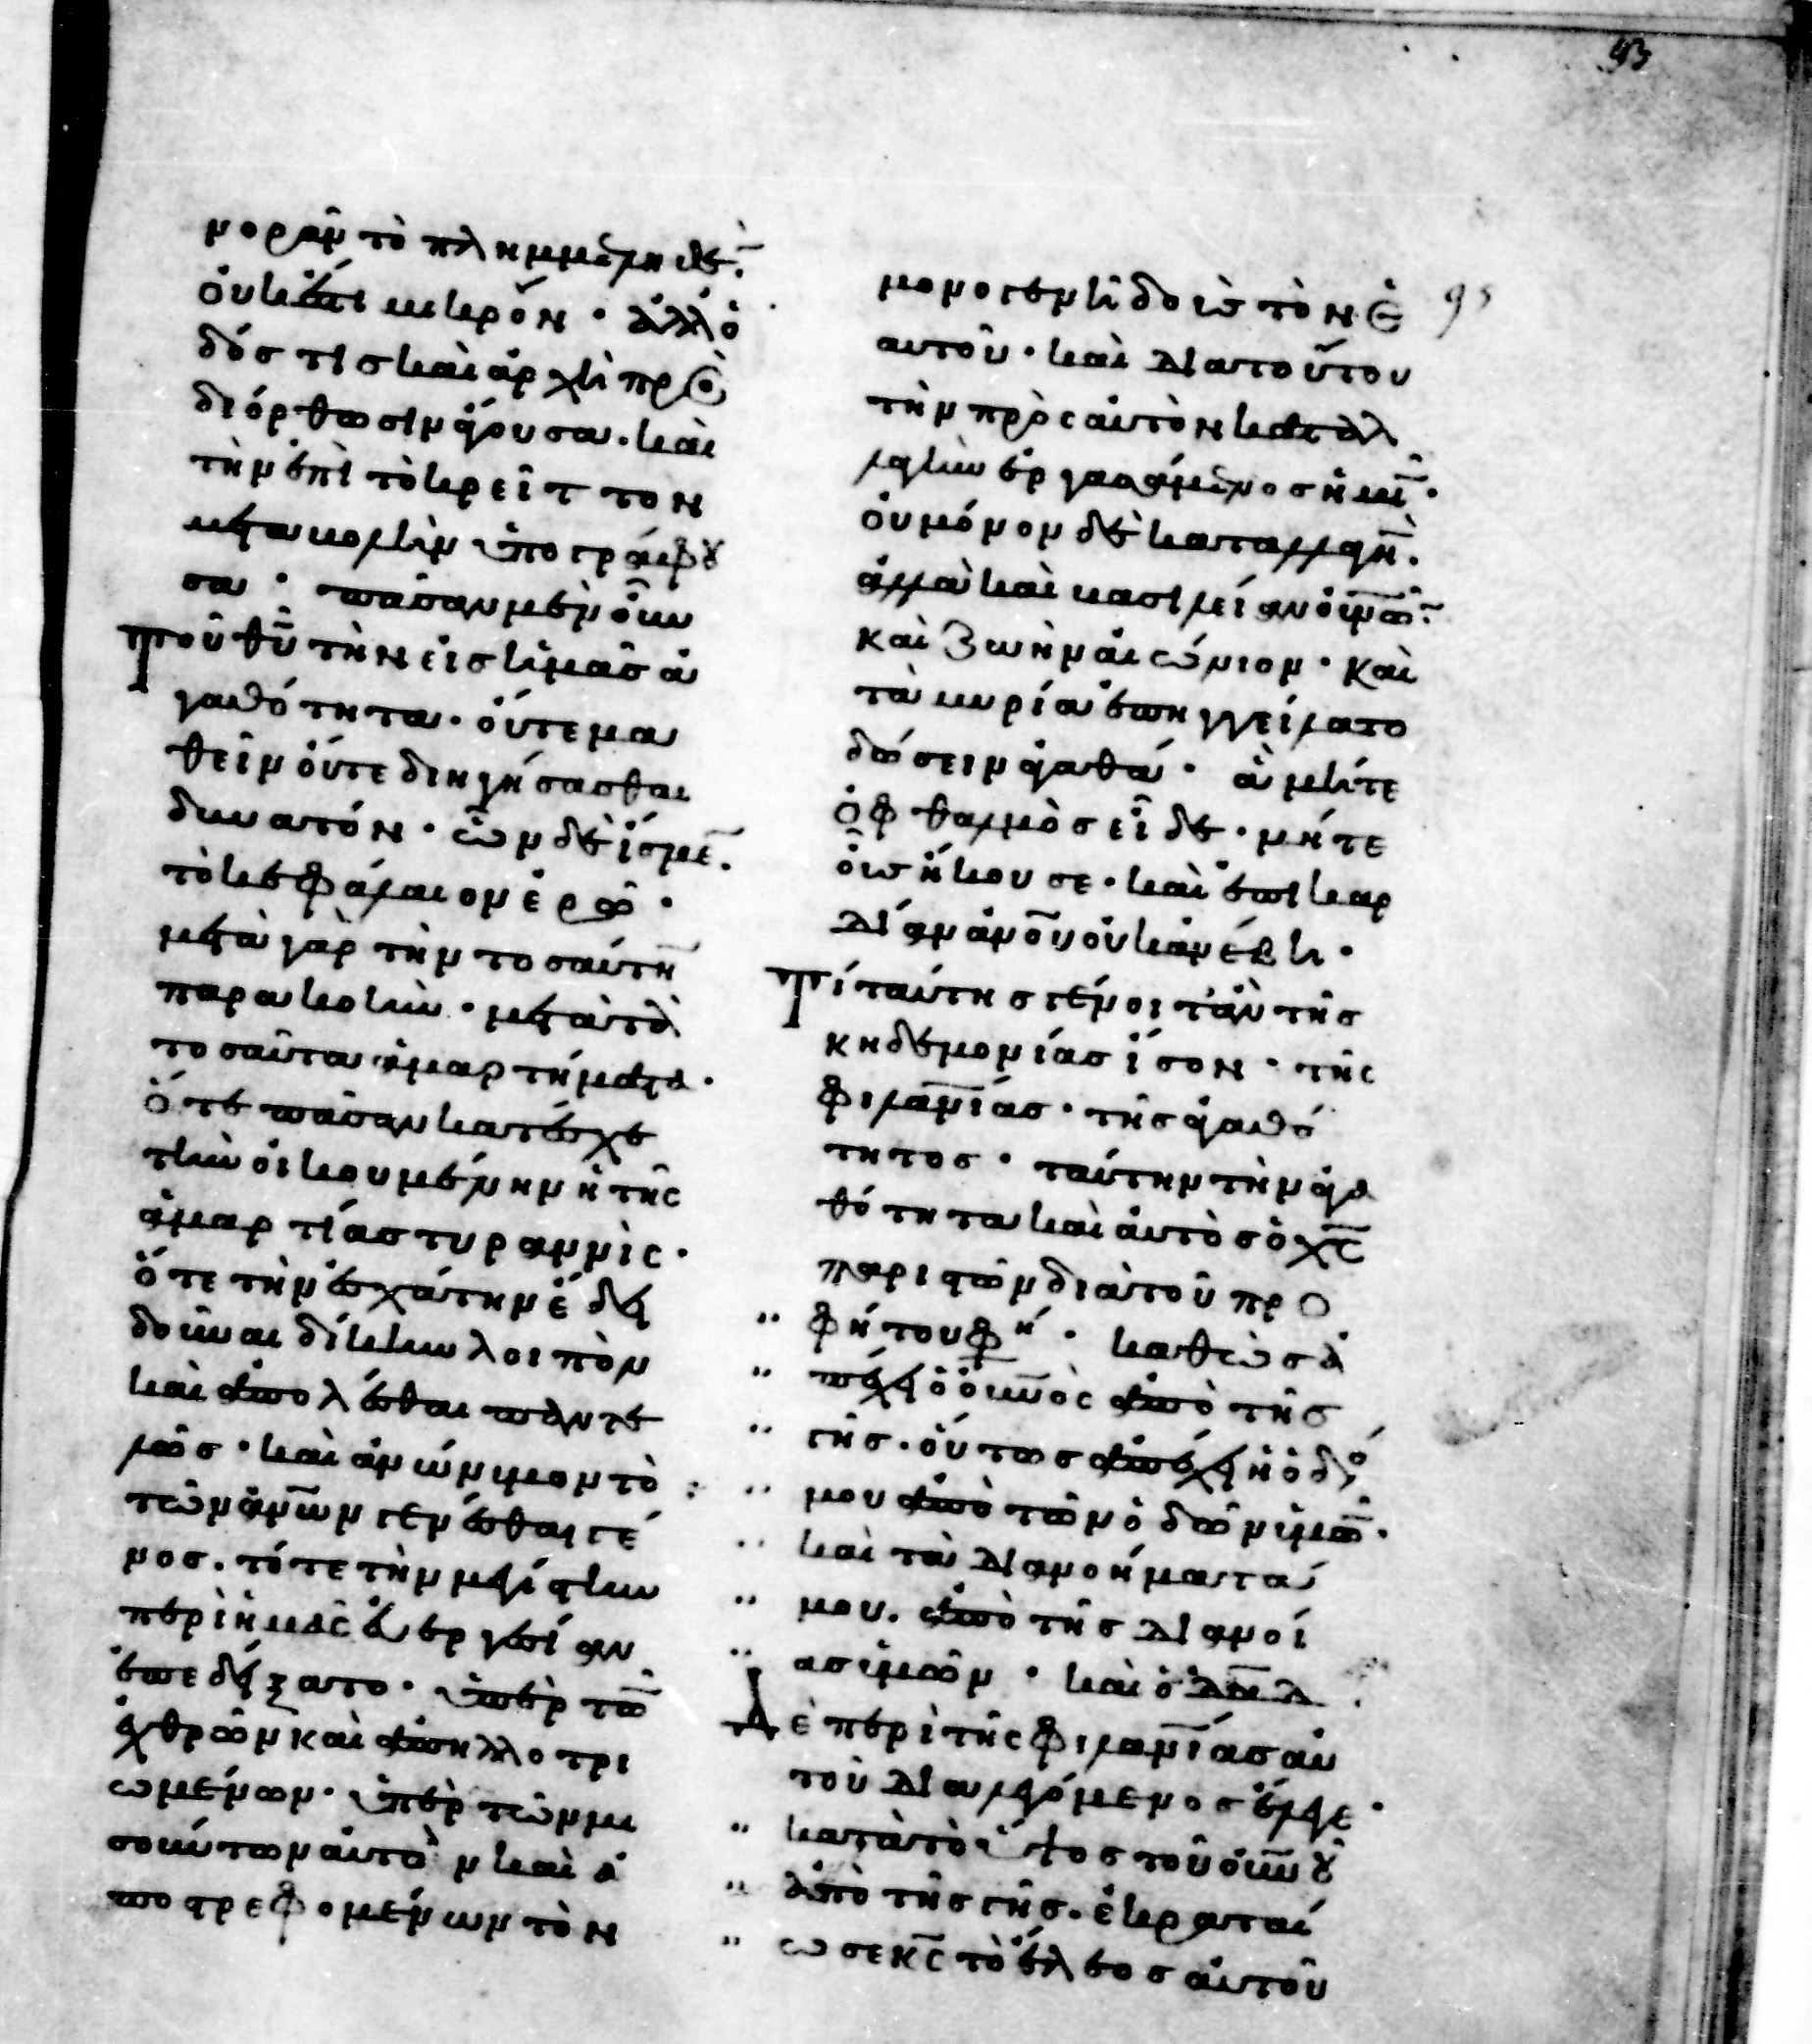 93
μοραν τὸ πλημμεληθέν.
οὐκέτι μικρὸν · ἀλλ ὁ
δός τις καὶ ἀρχὴ πρὸς
διόρθωσιν ἄγουσα. καὶ
τὴν ἐπὶ τὸ κρεῖττον
μεταβολὴν ὑπογράφου
σα · πᾶσαν μὲν οὖν
Τοῦ θῦ τὴν εἰς ἡμᾶς ἀ
γαθότητα · οὔτε μα
θεῖν οὔτε διηγήσασθαι
δυνατόν · ὧν δὲ ἴσμεν.
τὸ κεφάλαιον ἐρῶ ·
μετὰ γὰρ τὴν τοσαύτην
παρακοὴν · μετὰ τὰ
τοσαῦτα ἁμαρτήματα ·
ὅτε πᾶσαν κατέσχε
τὴν οἰκουμένην ἡ τῆς
ἁμαρτίας τυραννὶς ·
ὅτε τὴν ἐσχάτην ἔδει
δοῦναι δίκην λοιπὸν
καὶ ἀπολέσθαι παντε
λῶς · καὶ ἀνώνυμον τὸ
τῶν ἀνῶν γενέσθαι γέ
νος. τότε τὴν μεγίστην
περὶ ἡμᾶς εὐεργεσίαν
ἐπεδείξατο · ὑπὲρ τῶν
ἐχθρῶν καὶ ἀπηλλοτρι
ωμένων · ὑπὲρ τῶν μι
σούντων αὐτὸν καὶ ἀ
ποστρεφομένων τὸν
μονογενῆ δοὺς τὸν ἑ
95
αυτοῦ · καὶ διὰ τούτου
τὴν πρὸς αὐτὸν καταλ
λαγὴν ἐργασάμενος ἡμῖν ·
οὐ μόνον δὲ καταλλαγὴν.
ἀλλὰ καὶ βασιλείαν οὐνῶν.
καὶ ζωὴν αἰώνιον · καὶ
τὰ μυρία ἐπηγγείλατο
δώσειν ἀγαθά · ἃ μήτε
ὀφθαλμὸς εἶδε · μήτε
οὖς ἤκουσε · καὶ ἐπὶ καρ
δίαν ἀνοῦ οὐκ ἀνέβη ·
Τί ταύτης γένοιτ ἂν τῆς
κηδεμονίας ἴσον · τῆς
φιλανίας · τῆς ἀγαθό
τητος · ταύτην τὴν ἀγα
θότητα καὶ αὐτὸς ὁ χς
παριστῶν διὰ τοῦ προ
" φήτου φη · καθὼς ἀ
" πέχει ὁ οὐνὸς ἀπὸ τῆς
" γῆς · οὕτως ἀπέχει ἡ ὁδός
" μου ἀπὸ τῶν ὁδῶν ὑμῶν ·
" καὶ τὰ διανοήματά
" μου. ἀπὸ τῆς διανοί
" ας ὑμῶν · καὶ ὁ δαδ
Δὲ περὶ τῆς φιλανίας αὐ
τοῦ διαλεγόμενος ἔλεγε ·
" κατὰ τὸ ὕψος τοῦ οὐνοῦ
" ἀπὸ τῆς γῆς · ἐκραταί
" ωσε κς τὸ ἔλεος αὐτοῦ